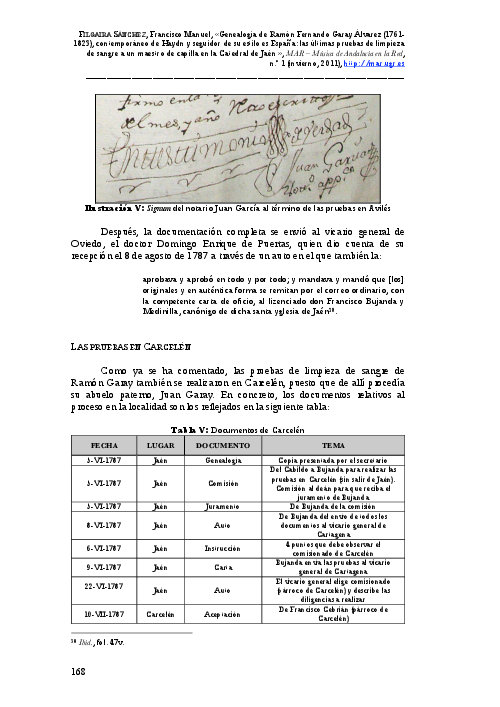 FILGAIRA SÁNCHEZ, Francisco Manuel, «Genealogía de Ramón Fernando Garay Álvarez (1761-
1823), contemporáneo de Haydn y seguidor de su estilo es España: las últimas pruebas de limpieza
de sangre a un maestro de capilla en la Catedral de Jaén», MAR – Música de Andalucía en la Red,
n.º 1 (invierno, 2011), http://mar.ugr.es
del mes, y año
testimonio de verdad
Juan García
Ilustración V: Signum del notario Juan García al término de las pruebas en Avilés
Después, la documentación completa se envió al vicario general de
Oviedo, el doctor Domingo Enrique de Puertas, quien dio cuenta de su
recepción el 8 de agosto de 1787 a través de un auto en el que también la:
aprobava y aprobó en todo y por todo; y mandava y mandó que [los]
originales y en auténtica forma se remitan por el correo ordinario, con
la competente carta de oficio, al licenciado don Francisco Bujanda y
Medinilla, canónigo de dicha santa yglesia de Jaén³⁸.
LAS PRUEBAS EN CARCELÉN
Como ya se ha comentado, las pruebas de limpieza de sangre de
Ramón Garay también se realizaron en Carcelén, puesto que de allí procedía
su abuelo paterno, Juan Garay. En concreto, los documentos relativos al
proceso en la localidad son los reflejados en la siguiente tabla:
Tabla V: Documentos de Carcelén
FECHA LUGAR DOCUMENTO TEMA
5-VI-1787 Jaén Genealogía Copia presentada por el secretario
5-VI-1787 Jaén Comisión Del Cabildo a Bujanda para realizar las
pruebas en Carcelén (sin salir de Jaén).
Comisión al deán para que reciba el
juramento de Bujanda
5-VI-1787 Jaén Juramento De Bujanda de la comisión
8-VI-1787 Jaén Auto De Bujanda del envío de todos los
documentos al vicario general de
Cartagena
6-VI-1787 Jaén Instrucción 4 puntos que debe observar el
comisionado de Carcelén
9-VI-1787 Jaén Carta Bujanda envía las pruebas al vicario
general de Cartagena
22-VI-1787 Jaén Auto El vicario general elige comisionado
(párroco de Carcelén) y describe las
diligencias a realizar
10-VII-1787 Carcelén Aceptación De Francisco Cebrián (párroco de
Carcelén)
³⁸ Ibid., fol. 47v.
168